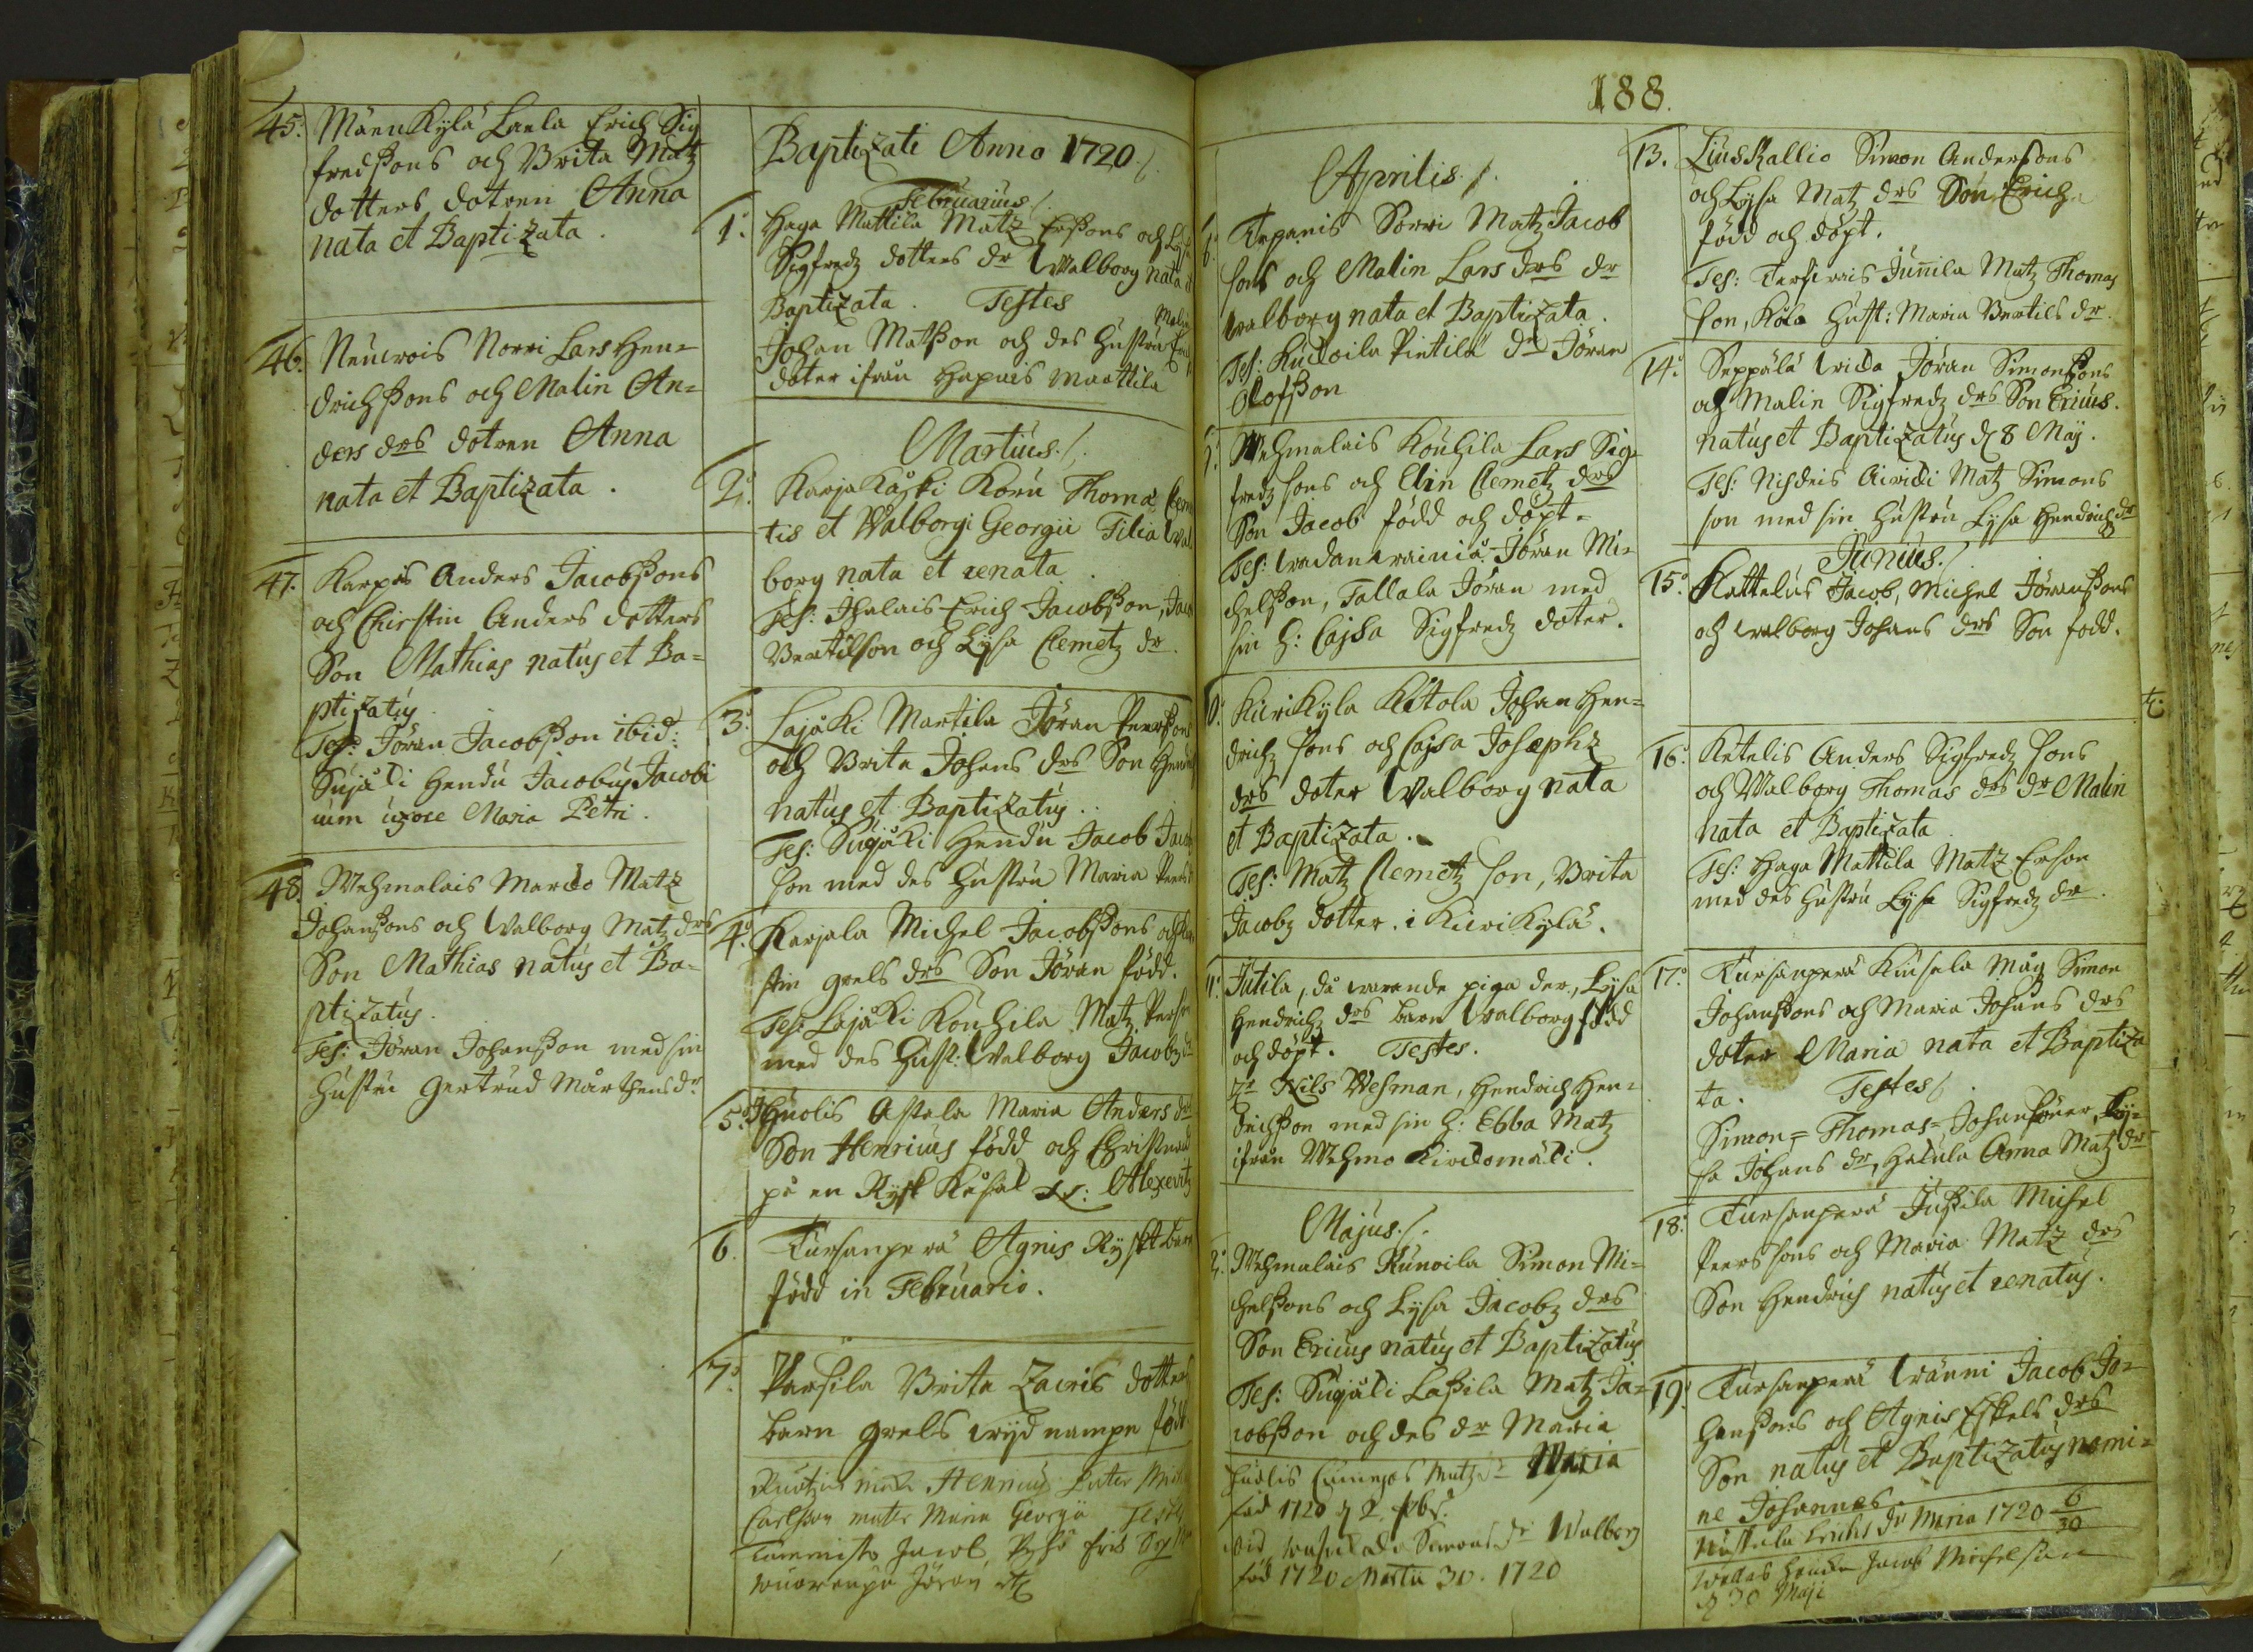 45. Mäenkylä Laula Erich Sig
fredßons och Brita Matz
dotters dotren Anna
nata et Baptizata.
46. Neuwois Norri Lars Hen=
drichßons och Malin An=
ders drs dotren Anna
nata et Baptizata.
47. Karpis Anders Jacobßons
och Chirstin Anders dotters
Son Mathias natus et Ba=
ptizatus
Tes: Jöran Jacobßon ibid:
Sujäki Hendu Jacobus Jacobi
cum uxore Maria Petri.
48. Wehmalais Marcko Matz
Johanßons och Walborg Matz drs
Son Mathias natus et Ba=
ptizatus.
Tes: Jöran Johanßon med sin
hustru Gertrud Mårthens dr
Baptizati Anno 1720
Februarius
1. Haga Mattila Matz Erßons och Lysa
Sigfredz dotters dr Walborg nata et
Baptizata. Testes
Johan Matßon och des hustru Malin
doter ifrån Hapuis Mattila
Martius
2. Karjakåski Koru Thomæ Clemen
tis et Walborgi Georgii Filia Wal
borg nata et renata
Tes: Ihalais Erich Jacobßon, Jacob
Bertilson och Lysa Clemetz dr.
3. Lajåki Martila Jöran Peerßons
och Brita Johans drs Son Hendrich
natus et Baptizatus.
Tes: Sujäki Hendu Jacob Jacob
son med des hustru Maria Peers dr
4. Karjala Michel Jacobßons och
stin Grels drs Son Jöran född.
Tes: Lajåki Kouhila Matz Persson
med des hust: Walborg Jacobz dr
5. Astala Maria Anders drs
Son Henricus född och Christnad
på en Rysk Alexevitz
6. Tursanperä Agnis Ryskt barn
född in Februario.
7. Parsila Brita Zacris dotters
barn Grels wijd nampn född
Henricus Pater Mich
Carlsson mater Maria Georgii Testes
Jacob
Jöran etc
188.
Aprilis
Sorri Matz Jacob
sons och Malin Lars drs dr
Walborg nata et Baptizata.
Tes: Kuckoila Pintilä dr Jöran
Olofßon
9. Wehmalais Kouhila Lars Sig=
fredz sons och Elin Clemetz drs
Son Jacob född och döpt.
Tes: Jöran Mi=
chelßon, Tallala Jöran med
sin h: Cajsa Sigfredz doter.
10. Kurikyla Ketola Johan Hen=
drichz sons och Cajsa Josephz
drs doter Walborg nata
et Baptizata.
Tes: Matz Clemetz son, Brita
Jacobz dotter. i Kurikylä.
11. Jutila, då warande piga der, Lysa
Hendrichz drs barn Walborg född
och döpt. Testes.
Hr Nils Wehman, Hendrich Hen=
drichßon med sin h: Ebba Matz
ifrån Wehmo Kirckomäki.
Majus
12. Wehmalais Runoila Simon Mi=
chelßons och Lysa Jacobz drs
Son Ericus natus et Baptizatus
Tes: Sujäki Laßila Matz Ja=
cobßon och des dr Maria
Matz dr Maria
född 1720 d. 2 febr.
Simons dr Walborg
född 1720 Martii 30. 1720
13. Liuskallio Simon Andersons
och Lysa Matz drs Son Erich
född och döpt.
Tes: Junnila Matz Thomas
son, Hust: Maria Bertils dr.
14. Seppälä Jöran Simonßons
och Malin Sigfredz drs Son Ericus.
natus et Baptizatus d. 8 Maij.
Tes: Matz Simons
son med sin hustru Lysa Hendrichz dr
Junius
15. Kattelus Jacob, Michel Jöranßons
och Walborg Johans drs Son född.
16. Ketelis Anders Sigfredz sons
och Walborg Thomas drs dr Malin
nata et Baptizata
Tes: Haga Mattila Matz Erson
med des hustru Lysa Sigfredz dr.
17. Tursanperä Kiusala Måg Simon
Johanßons och Maria Johans drs
doter Maria nata et Baptiza
ta. Testes
Simon= Thomas= Johansöner, Ly=
sa Johans dr, Anna Matz dr
18. Tursanperä Jußila Michel
Peers sons och Maria Matz drs
Son Hendrich natus et renatus.
19. Tursanperä Wänni Jacob Jo=
hanßons och Agnis Eskels drs
Son natus et Baptizatus nomi=
ne Johannes
dr Maria 1720 6/30
Jacob Michelson
d. 30 Maji